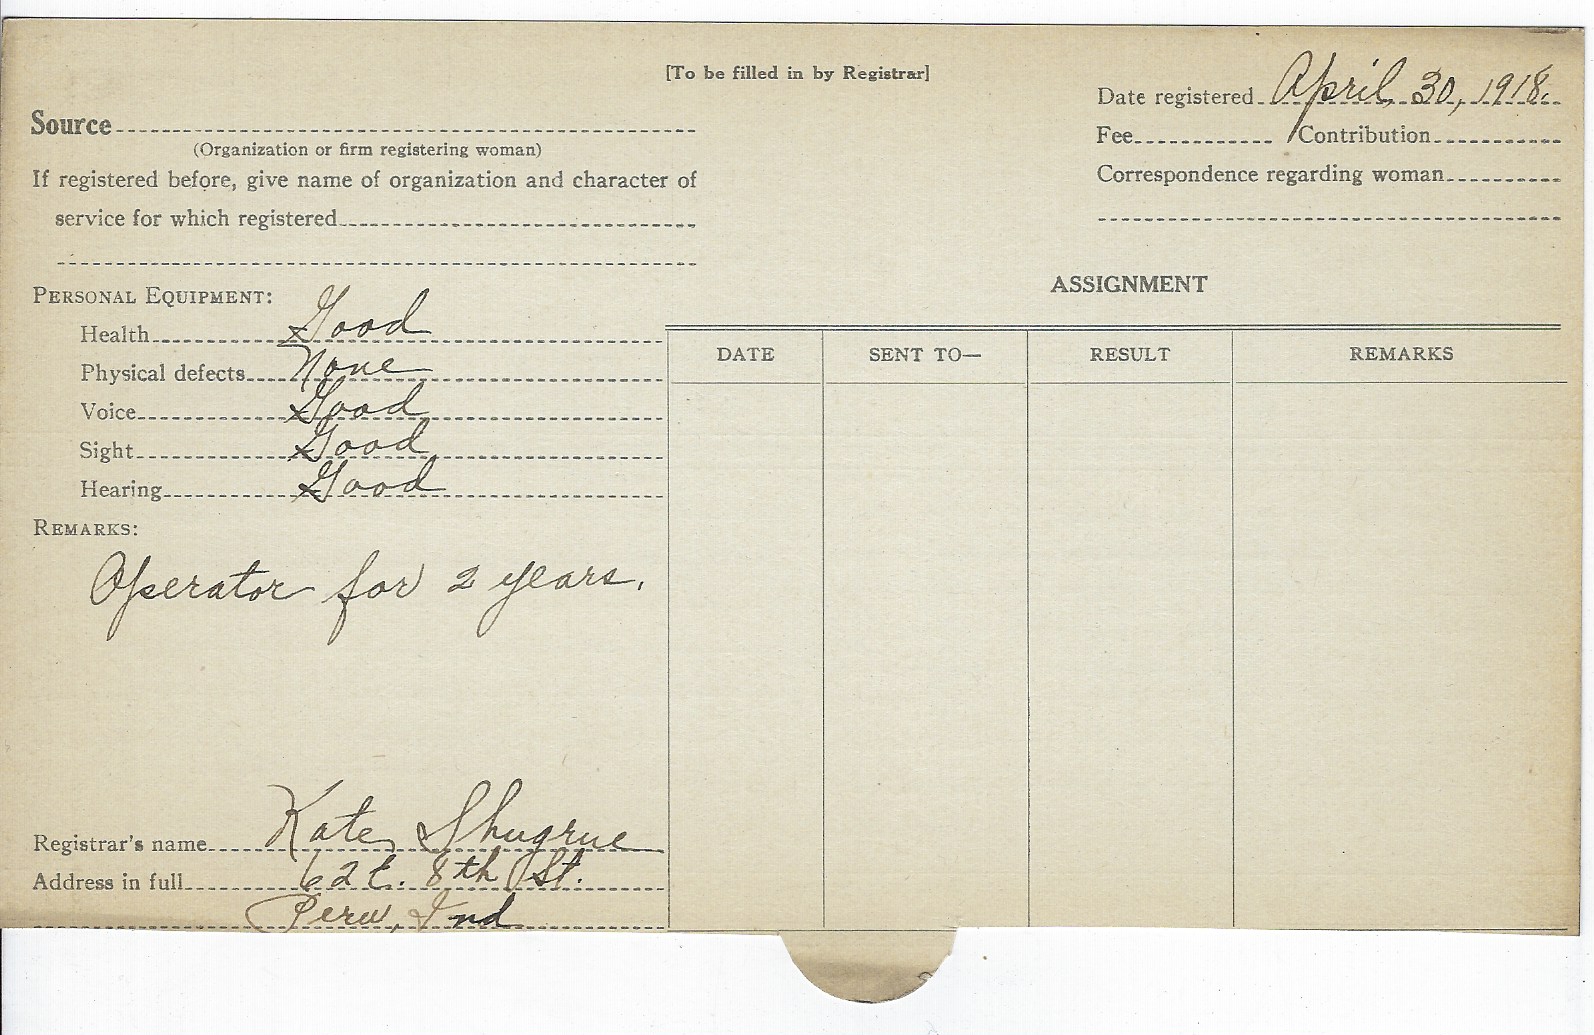 [To be filled in by Registrar]
Date registered April 30, 1918.
Source
(Organization or firm registering woman)
Fee Contribution
If registered before, give name of organization and character of
service for which registered
Correspondence regarding woman
PERSONAL EQUIPMENT:
Health Good
Physical defects None
Voice Good
Sight Good
Hearing Good
REMARKS:
Operator for 2 years.
Registrar's name Kate Shugrue
Address in full 62 E. 8th St.
Peru, Ind
ASSIGNMENT
DATE SENT TO— RESULT REMARKS